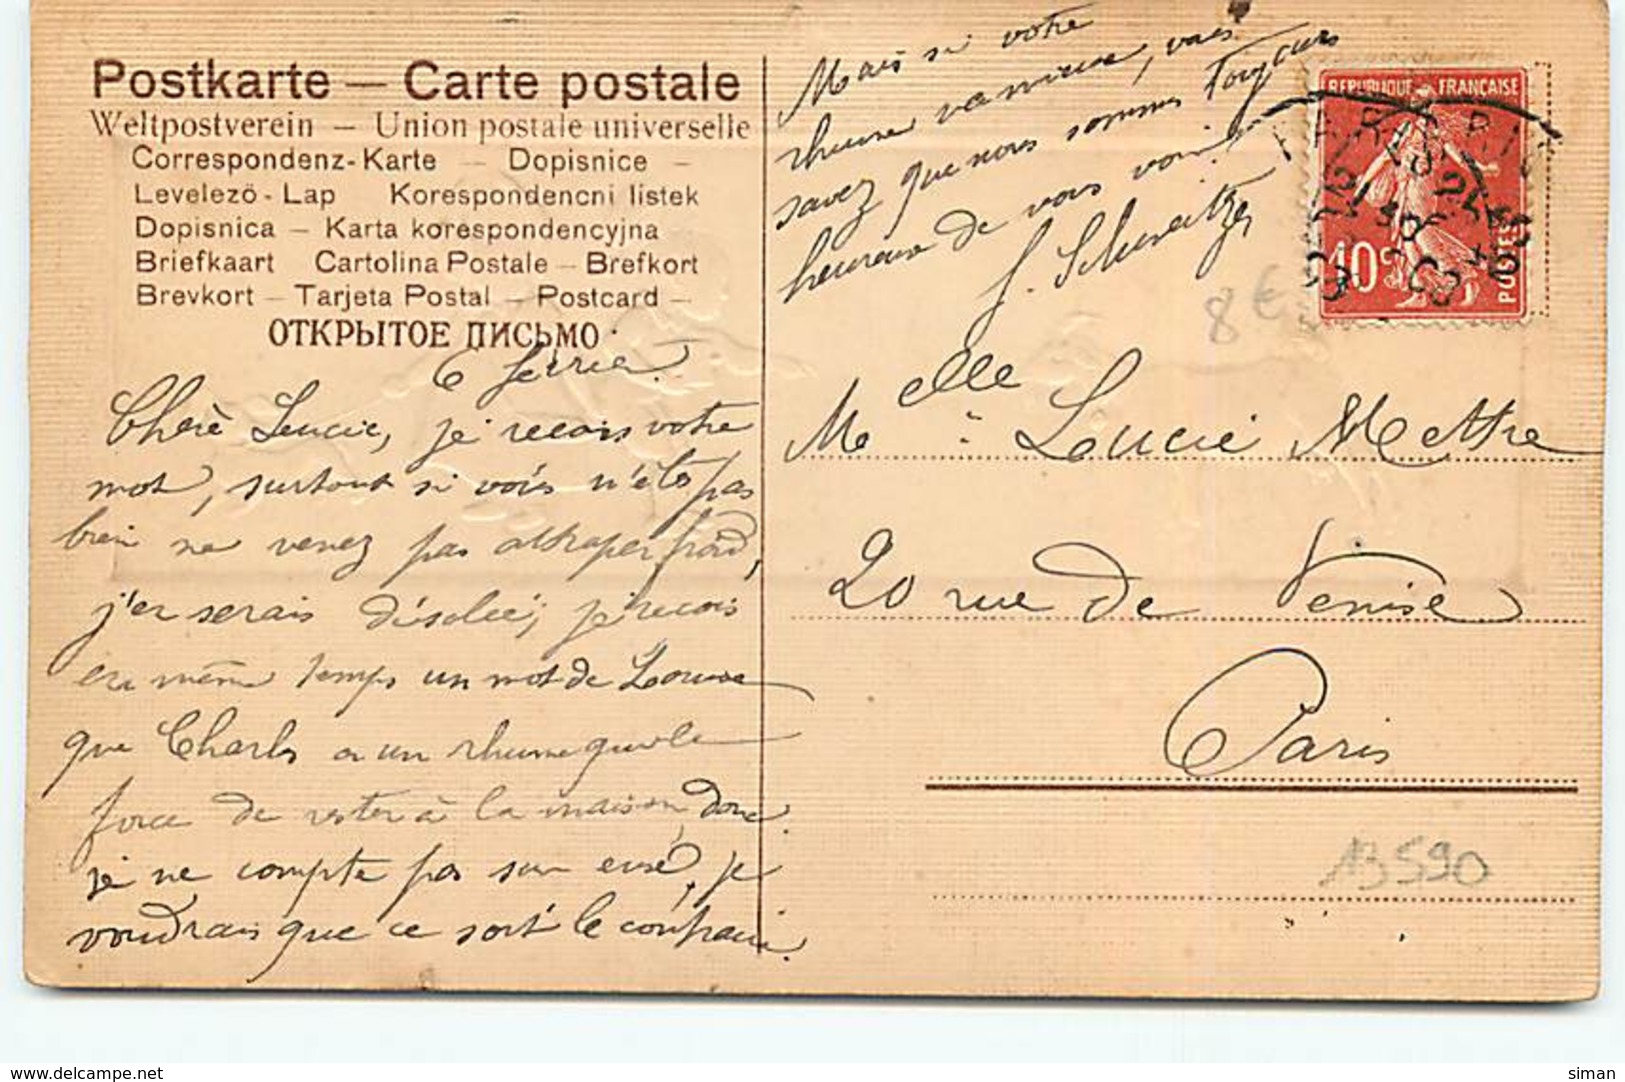 Postkarte — Carte postale
Weltpostverein — Union postale universelle
Correspondenz-Karte — Dopisnice —
Levelezö-Lap Korespondencni listek
Dopisnica — Karta korespondencyjna
Briefkaart Cartolina Postale — Brefkort
Brevkort — Tarjeta Postal — Postcard —
ОТКРЫТОЕ ПИСЬМО.
6 février
Chère Lucie, je recois votre
mot, surtout si vous n'êtes pas
bien ne venez pas attraper froid,
j'en serais désolée, je recois
en même temps un mot de Louise
que Charles a un rhume qui le
force de rester à la maison, donc
je ne compte pas sur eux, je
voudrais que ce soit le contraire.
Mais si votre
rhume va mieux, vous
savez que nous sommes toujours
heureux de vous voir.
J. Schweitzer
REPUBLIQUE FRANÇAISE
10c
POSTES
8€
Melle Lucie Mettre
20 rue de Venise
Paris
13590
www.delcampe.net
siman